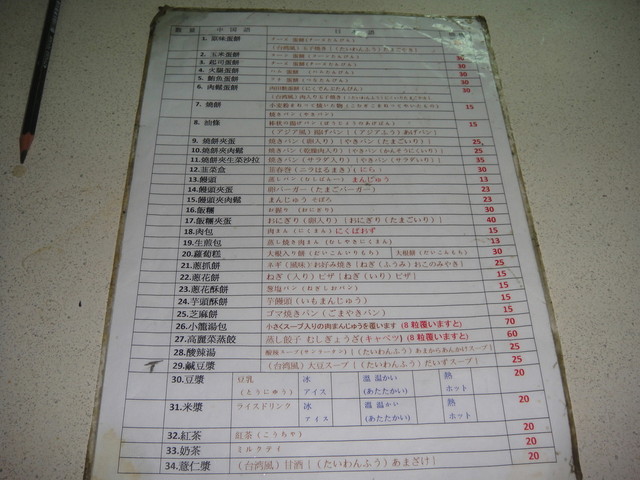 數量 中國語 日本語
1. 原味蛋餅
(台湾風)玉子焼き (たいわんふうたまごやき)
2. 玉米蛋餅 30
3. 起司蛋餅 30
4. 火腿蛋餅 30
5. 鮪魚蛋餅 30
6. 肉鬆蛋餅 30
7. 燒餅 15
焼きパン (やきパン)
8. 油條 15
(アジア風) 揚げパン (アジアふう) あげパン
9. 燒餅夾蛋 焼きパン (卵入り) やきパン (たまごいり) 25
10.燒餅夾肉鬆 焼きパン (乾燥肉入り) やきパン (かんそうにくいり) 25
11.燒餅夾生菜沙拉 焼きパン (サラダ入り) やきパン (サラダいり) 35
12.韮菜盒 韮春巻 (ニラはるまき) にら 30
13.饅頭 蒸しパン (むしぱん) まんじゅう 13
14.饅頭夾蛋 卵バーガー (たまごバーガー) 23
15.饅頭夾肉鬆 まんじゅう そぼろ 23
16.飯糰 お握り (おにぎり) 30
17.飯糰夾蛋 おにぎり (卵入り) おにぎり (たまごいり) 40
18.肉包 肉まん (にくまん) にくぱおず 15
19.生煎包 蒸し焼き肉まん (むしやきにくまん) 13
20.蘿蔔糕 大根入り餅 (だいこんいりもち) 大根餅 (だいこんもち) 30
21.蔥抓餅 ネギ (風味) お好み焼き ねぎ (ふうみ) おこのみやき 25
22.蔥花餅 ねぎ (入り) ピザ ねぎ (いり) ピザ 15
23.蔥花酥餅 葱塩パン (ねぎしおパン) 15
24.芋頭酥餅 芋饅頭 (いもまんじゅう) 15
25.芝麻餅 ゴマ焼きパン (ごまやきパン) 15
26.小籠湯包 小さくスープ入りの肉まんじゅうを覆います (8 粒覆いますと) 70
27.高麗菜蒸餃 蒸し餃子 むしぎょうざ (キャベツ) (8 粒覆いますと) 60
28.酸辣湯 酸辣スープ (サンラータン) (たいわんふう) あまからあんかけスープ 25
29.鹹豆漿 (台湾風) 大豆スープ (たいわんふう) だいずスープ 25
30.豆漿 豆乳 冰 温 温かい 熱 20
(とうにゅう) アイス (あたたかい) ホット
31.米漿 ライスドリンク 冰 温 温かい 熱 20
アイス (あたたかい) ホット
32.紅茶 紅茶 (こうちゃ) 20
33.奶茶 ミルクティ 20
34.薏仁漿 (台湾風) 甘酒 (たいわんふう) あまざけ 20